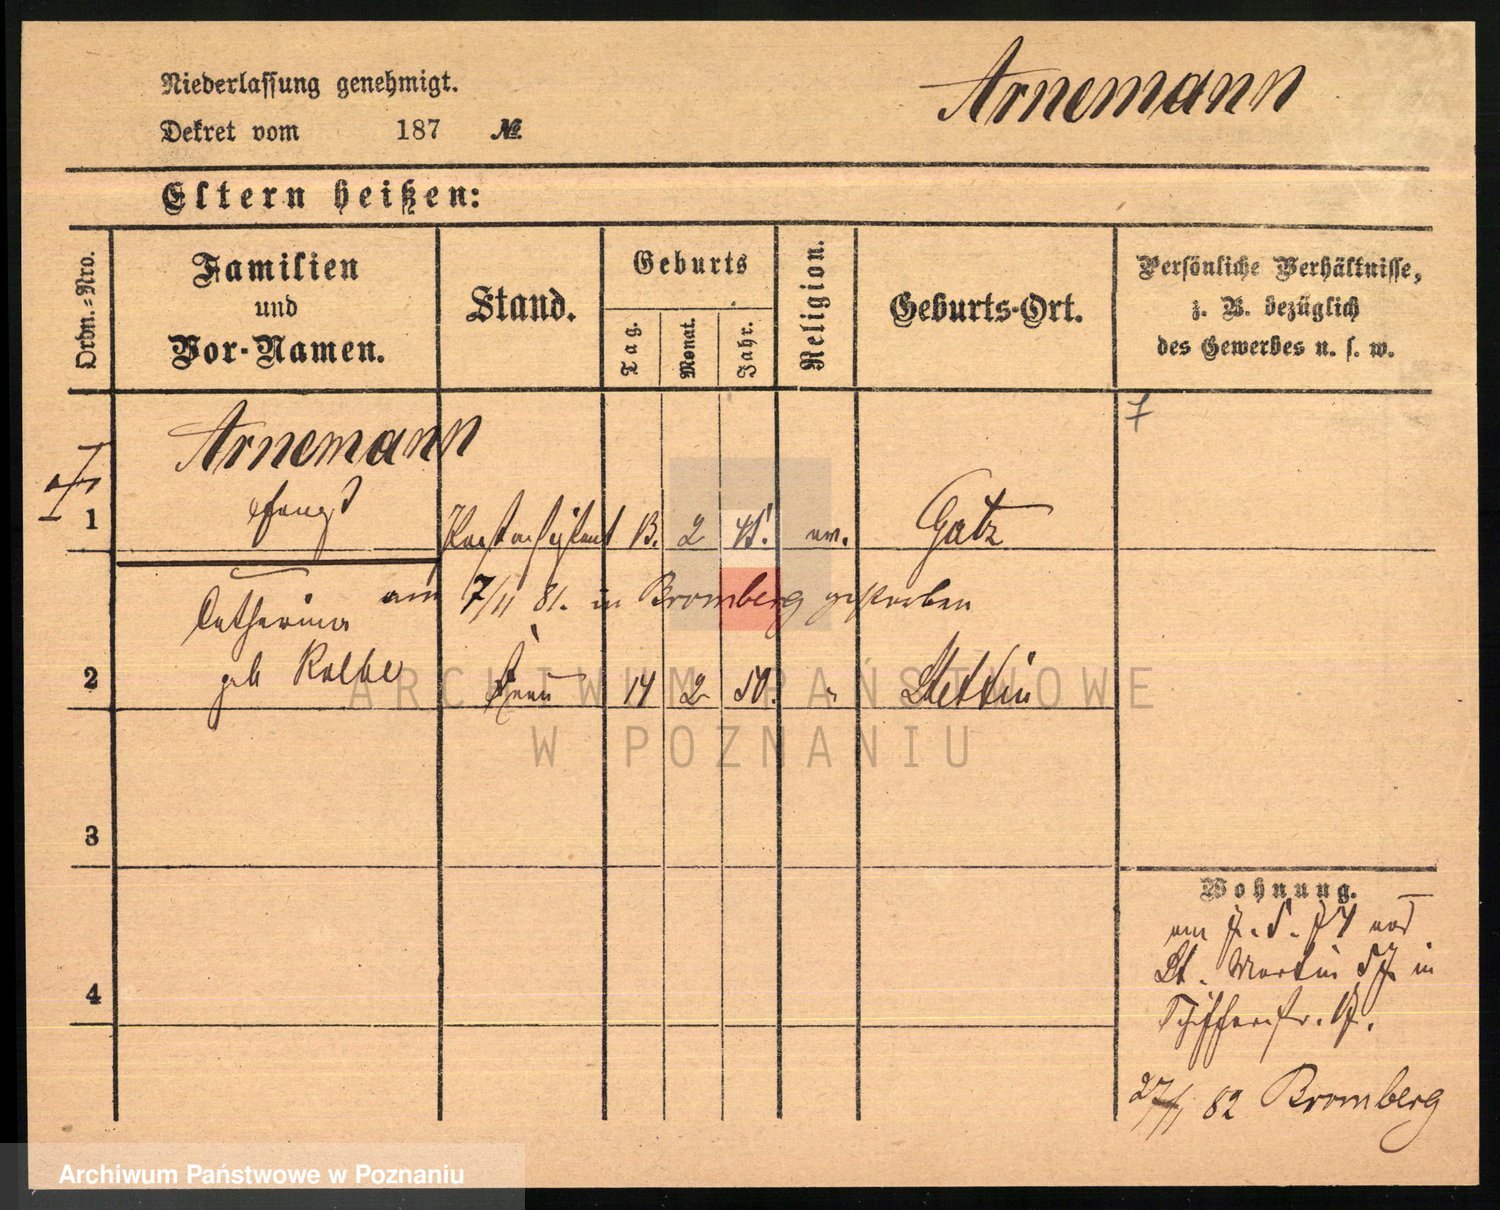 Arnemann
Niederlassung genehmigt.
Dekret vom 187 №
Eltern heißen:
Ordn.=Nro.
Familien
und
Vor-Namen.
Stand.
Geburts
Tag.
Monat.
Jahr.
Religion.
Geburts-Ort.
Persönliche Verhältnisse,
z. B. bezüglich
des Gewerbes u. s. w.
Arnemann
1 2 ev. Gatz
am 7/11 81. in Bromberg gestorben
Catharina
2 geb Kolbe Frau 14 2 50. " Stettin
3
Wohnung.
St. Martin 57 in
4
27/1 82 Bromberg
ARCHIWUM PAŃSTWOWE
W POZNANIU
Archiwum Państwowe w Poznaniu